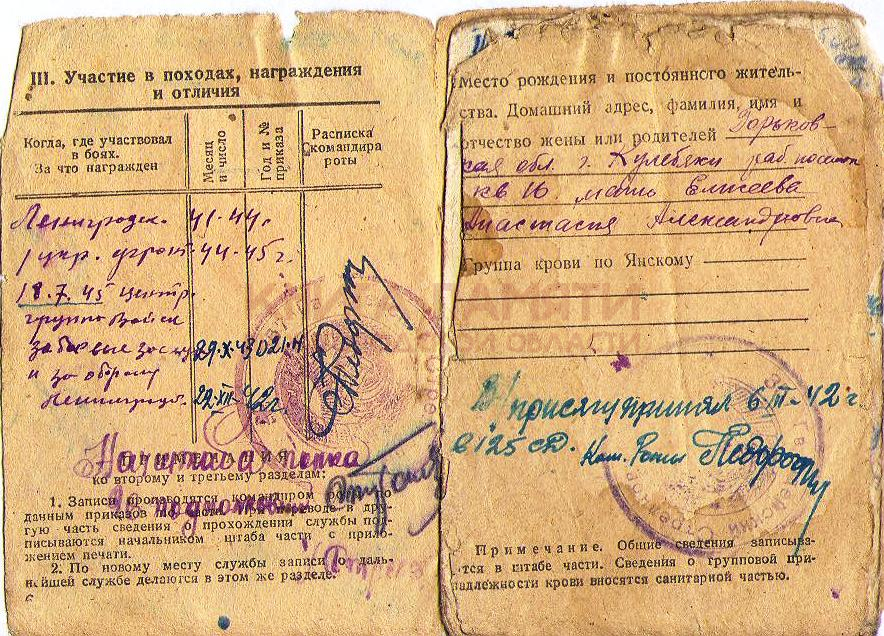 III. Участие в походах, награждения
и отличия
Когда, где участвовал
в боях.
За что награжден
Месяц
и число
Год и №
приказа
Расписка
командира
роты
Ленинградск. 41-44г.
1 укр. фронт. 44-45 г.
18.7.45 Центр.
группа войск
за боевые заслуги 29.X.43 021-н
и за оборону
Ленинграда. 22.XII. 42г.
Начштаба полка
ПРИМЕЧАНИЯ
ко второму и третьему разделам:
1. Записи производятся командиром роты по
данным приказов по части. При переводе в дру-
гую часть сведения о прохождении службы под-
писываются начальником штаба части с прило-
жением печати.
2. По новому месту службы записи о даль-
нейшей службе делаются в этом же разделе.
6
Место рождения и постоянного житель-
ства. Домашний адрес, фамилия, имя и
отчество жены или родителей Горьков-
ская обл. г. Кулебяки раб. поселок
кв 16. мать Елисеева
Анастасия Александровна
Группа крови по Янскому
присягу принял 6 III-42 г
в 125 сд. Ком. Роты
Примечание. Общие сведения записыва-
ются в штабе части. Сведения о групповой при-
надлежности крови вносятся санитарной частью.